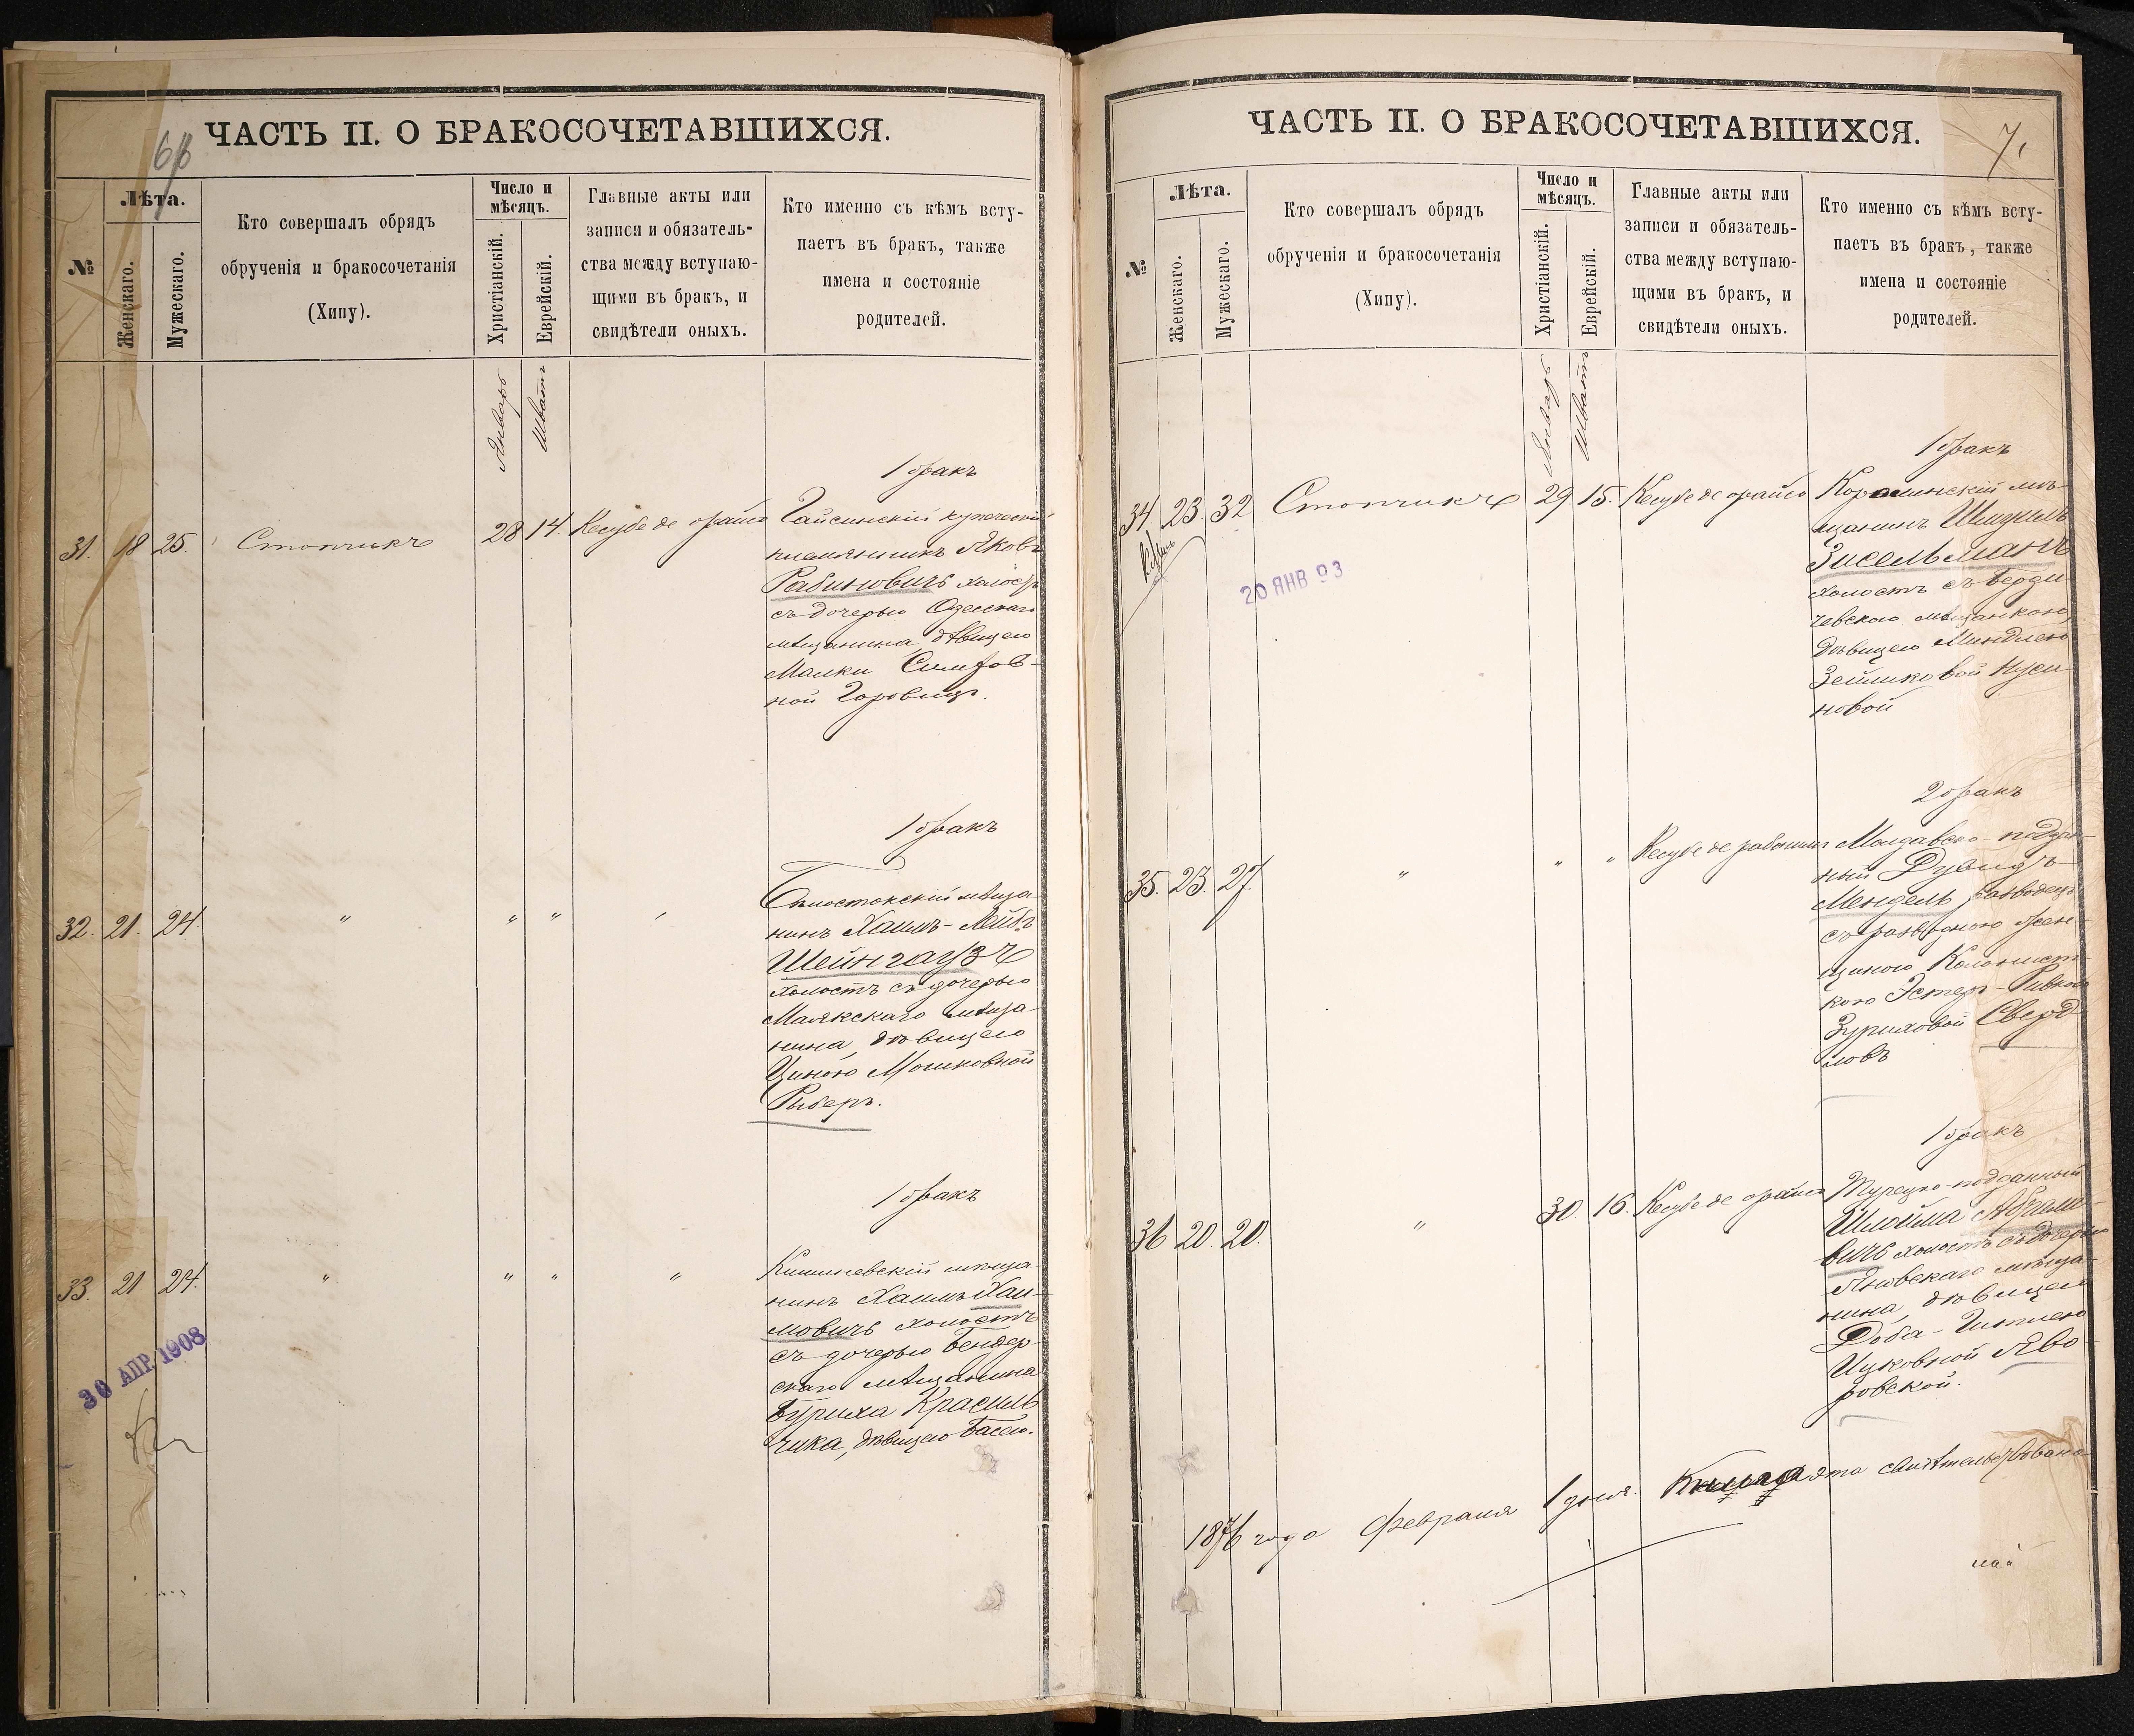 ЧАСТЬ II. О БРАКОСОЧЕТАВШИХСЯ.
№
Лѣта.
Женскаго.
Мужескаго.
Кто совершалъ обрядъ
обрученія и бракосочетанія
(Хипу).
Число и
мѣсяцъ.
Христіанскій.
Еврейскій.
Главные акты или
записи и обязатель-
ства между вступаю-
щими въ бракъ, и
свидѣтели оныхъ.
Кто именно съ кѣмъ всту-
паетъ въ бракъ, также
имена и состояніе
родителей.
Январь
Шватъ
1 бракъ
31. 18 25. Стопчикъ 28 14. Кесубе де орайсо Гайсинскій купеческій
племянникъ Яковъ
Рабиновичъ холостъ
съ дочерью Одесскаго
мѣщанина, дѣвицею
Малки Симхов-
ной Горовицъ.
1 бракъ
32. 21. 24. " " " Бѣлостокскій мѣща-
нинъ Хаимъ-Лейбъ
Шейнгаузъ
холостъ съ дочерью
Маякскаго мѣща-
нина, дѣвицею
Циною Мошковной
Рыберъ.
1 бракъ
33. 21 24. " " " " Кишиневскій мѣща-
нинъ Хаимъ Хаи-
мовичъ холостъ
съ дочерью Бендер-
скаго мѣщанина
Буриха Красиль-
чика, дѣвицею Басею.
30 АПР. 1908
ЧАСТЬ II. О БРАКОСОЧЕТАВШИХСЯ.
7.
№
Лѣта.
Женскаго.
Мужескаго.
Кто совершалъ обрядъ
обрученія и бракосочетанія
(Хипу).
Число и
мѣсяцъ.
Христіанскій.
Еврейскій.
Главные акты или
записи и обязатель-
ства между вступаю-
щими въ бракъ, и
свидѣтели оныхъ.
Кто именно съ кѣмъ всту-
паетъ въ бракъ, также
имена и состояніе
родителей.
Январь
Шватъ
1 бракъ
34. 23. 32 Стопчикъ 29 15. Кесубе де орайсо мѣ-
щанинъ
Зисельманъ
холостъ съ Берди-
чевскою мѣщанкою,
дѣвицею Миндлею
Зейликовой Нуси-
новой
20 ЯНВ 93
2 бракъ
35. 23. 27. " " " Кесубе де Молдавско-поддан-
ный Дувидъ
Мендель разводецъ
съ разводною жен-
щиною Колонист-
кою Эстеръ-Ривкою
Зуриховой Сверд-
ловъ
1 бракъ
36 20. 20. " 30. 16. Кесубе де орайсо Турецко-подданный
Шлойма Абрамо-
вичъ холостъ съ дочерью
Яновскаго мѣща-
нина, дѣвицею
Доба-Читлею
Ицковной Яво-
ровской.
1876 года Февраля 1 дня. Книга эта свидѣтельствована